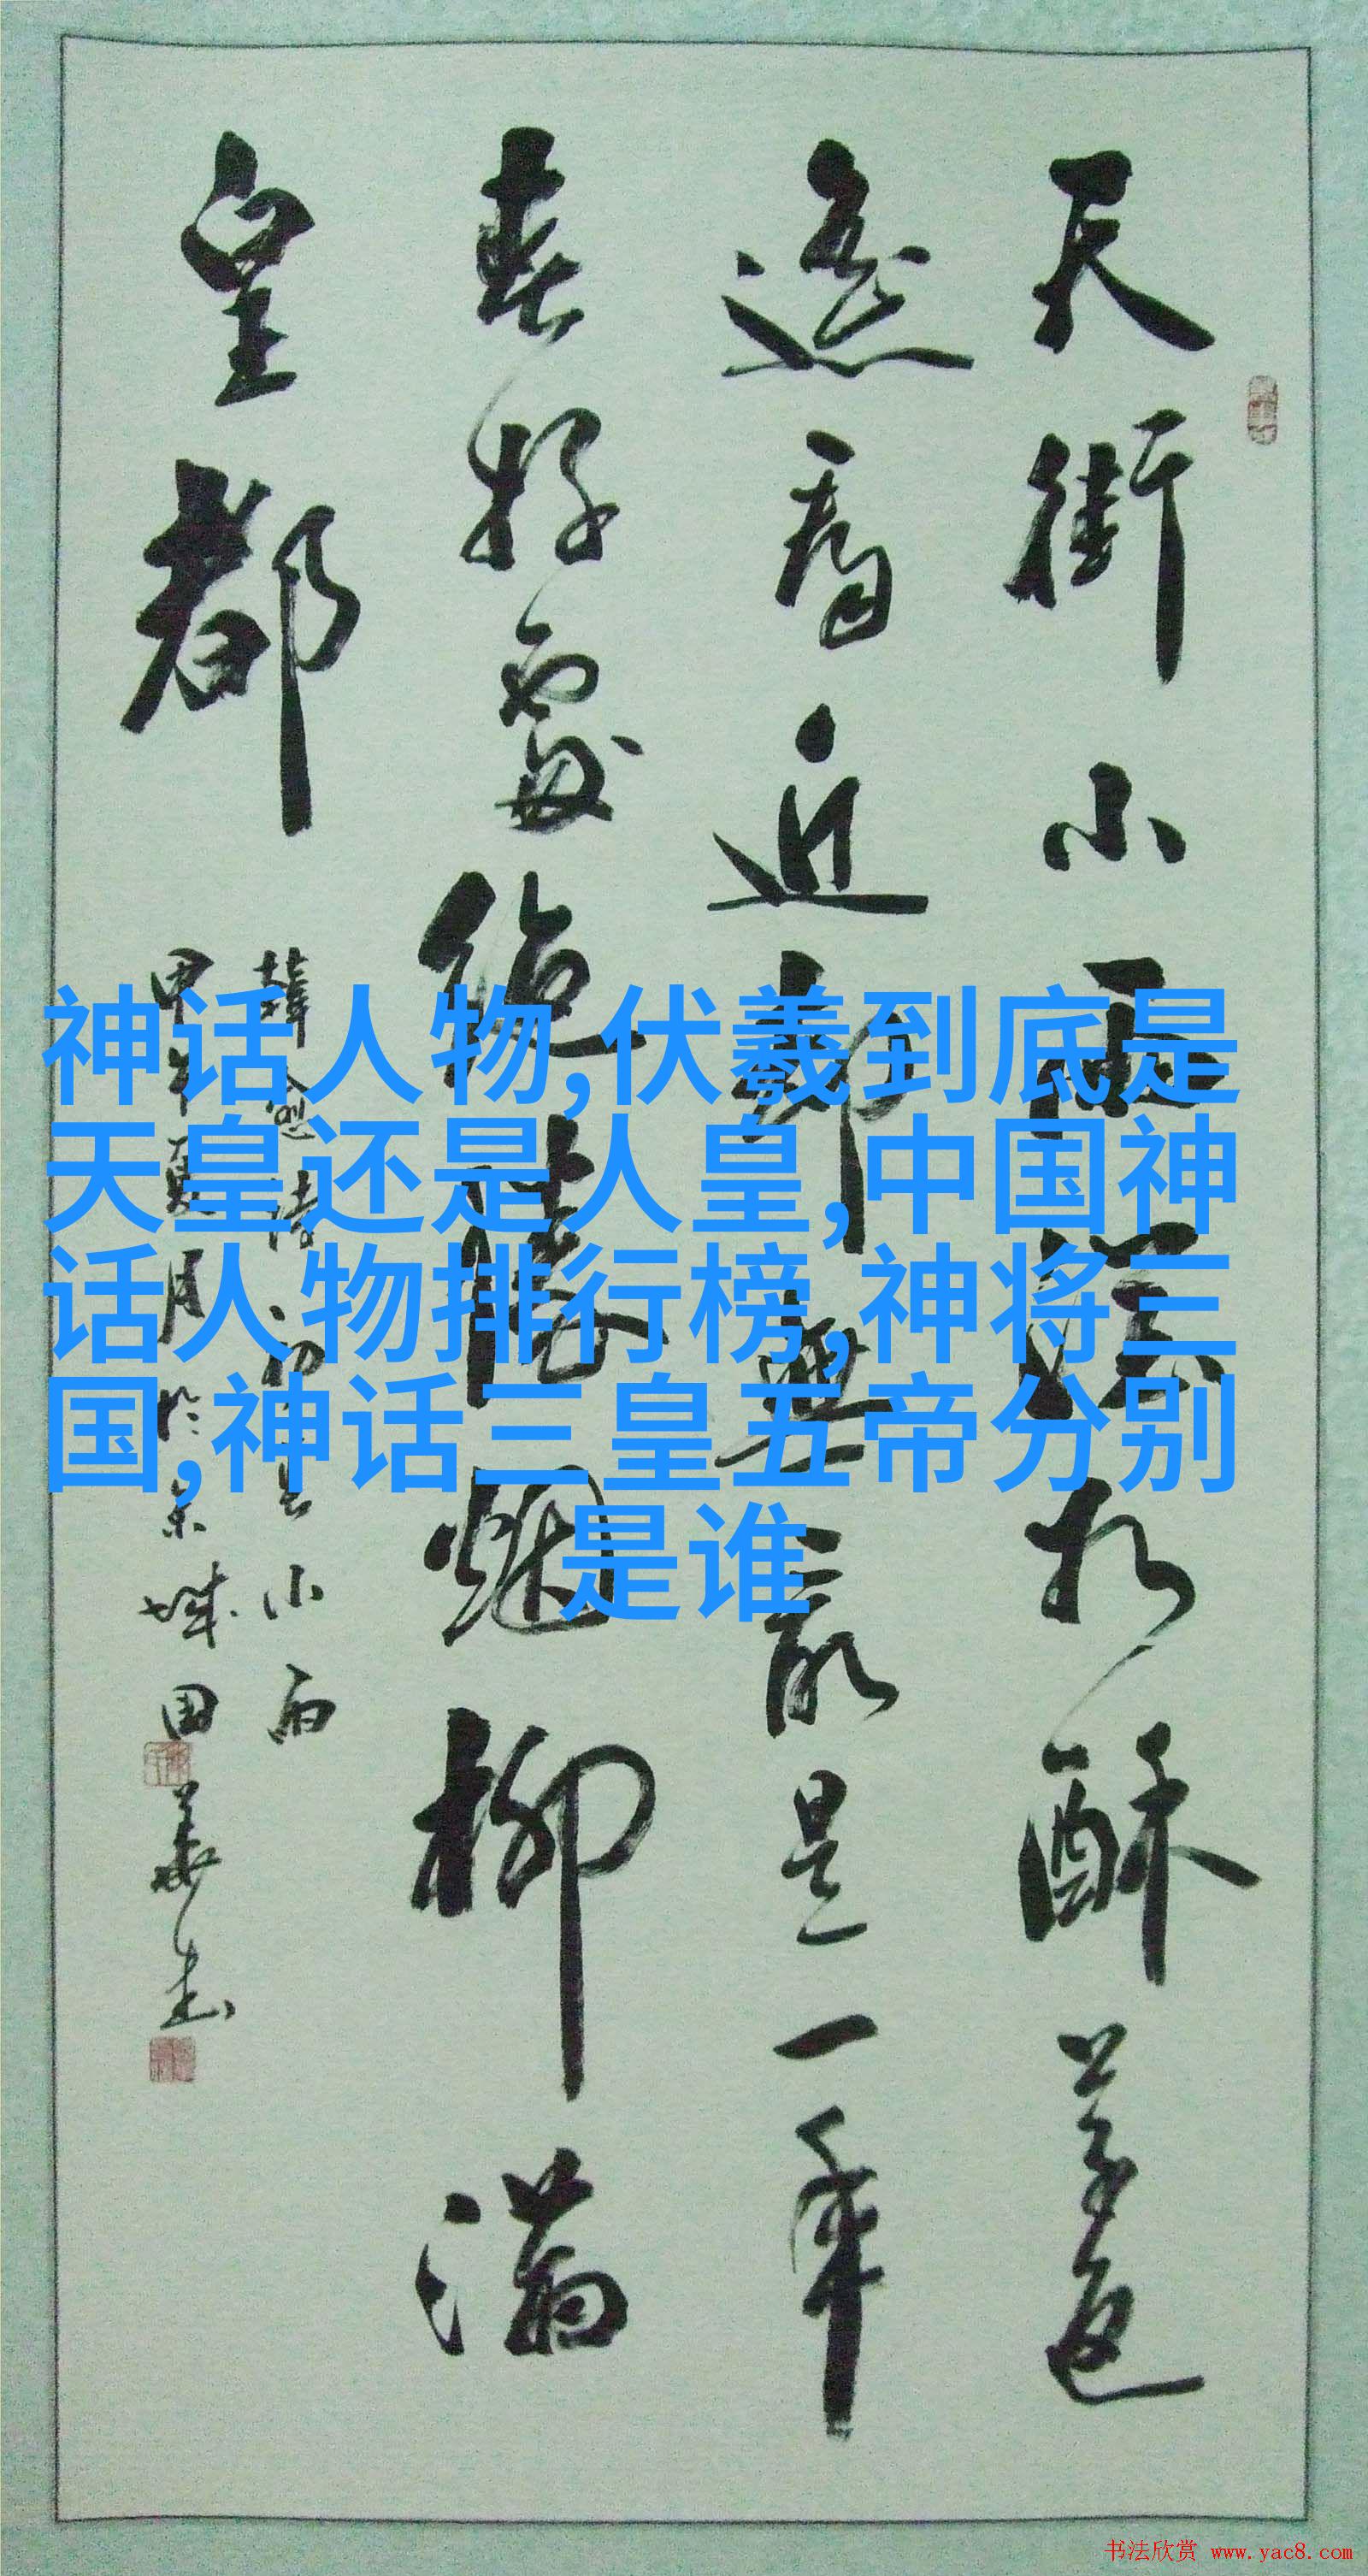 天街小雨润如酥草色
遥看近却无最是一年
春好处绝胜烟柳满
皇都
韩愈诗初春小雨
甲午夏月於京城国华书
神话人物,伏羲到底是
天皇还是人皇,中国神
话人物排行榜,神将三
国,神话三皇五帝分别
是谁
书法欣赏 www.yac8.com